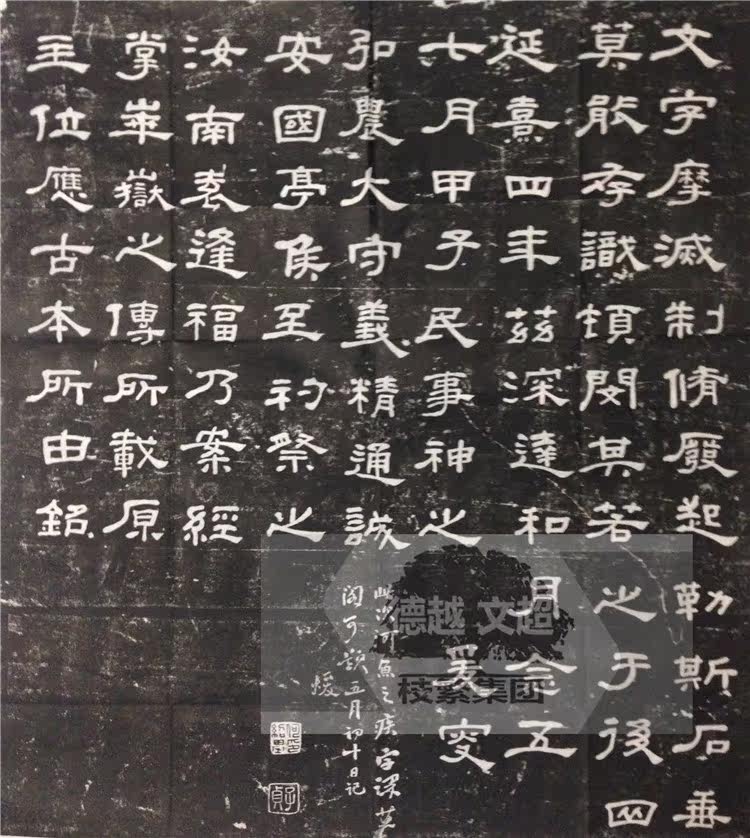 文字摩滅制脩廢起勒斯石垂
莫能存識頊閔其若之于後四
延熹四年茲深達和月念五
七月甲子民事神之爰叟
弘農大守義精通誠
安國亭侯至礿祭之
汝南袁逢福乃案經
掌華嶽之傳所載原
主位應古本所由銘
河魚之疾字深
五月初十日記
蝯
德越 文超
枝繁集团